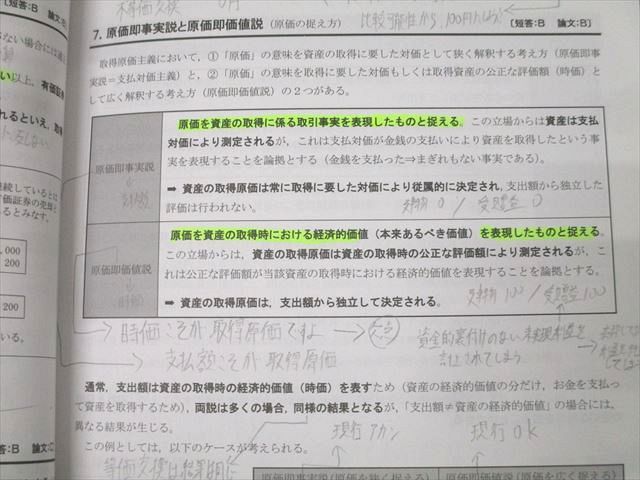 等価交換 0円
比較可能性から、100円
7. 原価即事実説と原価即価値説（原価の捉え方）
[短答:B 論文:B]
取得原価主義において，①「原価」の意味を資産の取得に要した対価として狭く解釈する考え方（原価即事
実説＝支払対価主義）と，②「原価」の意味を取得に要した対価もしくは取得資産の公正な評価額（時価）と
して広く解釈する考え方（原価即価値説）の２つがある。
原価即事実説
原価を資産の取得に係る取引事実を表現したものと捉える。この立場からは資産は支払
対価により測定されるが，これは支払対価が金銭の支払いにより資産を取得したという事
実を表現することを論拠とする（金銭を支払った⇒まぎれもない事実である）。
➡ 資産の取得原価は常に取得に要した対価により従属的に決定され，支出額から独立した
評価は行われない。
0 / 受贈益 0
原価即価値説
原価を資産の取得時における経済的価値（本来あるべき価値）を表現したものと捉える。
この立場からは，資産の取得原価は資産の取得時の公正な評価額により測定されるが，こ
れは公正な評価額が当該資産の取得時における経済的価値を表現することを論拠とする。
➡ 資産の取得原価は，支出額から独立して決定される。
100 / 受贈益 100
時価こそが取得原価ですよ
支払額こそが取得原価
資金的裏付けのない未実現利益を
計上されてしまう
通常，支出額は資産の取得時の経済的価値（時価）を表すため（資産の経済的価値の分だけ，お金を支払っ
て資産を取得するため），両説は多くの場合，同様の結果となるが，「支出額≠資産の経済的価値」の場合には，
異なる結果が生じる。
現行アカン 現行OK
この例としては，以下のケースが考えられる。
等価交換は結果
原価即事実説（原価を狭く捉える） 原価即価値説（原価を広く捉える）
ない場合には
い以上，有価証
れるといえ，取
継続しているとは
価証券の売却
るとみなす。
.000
200
200
いる。
答:B 論文:C